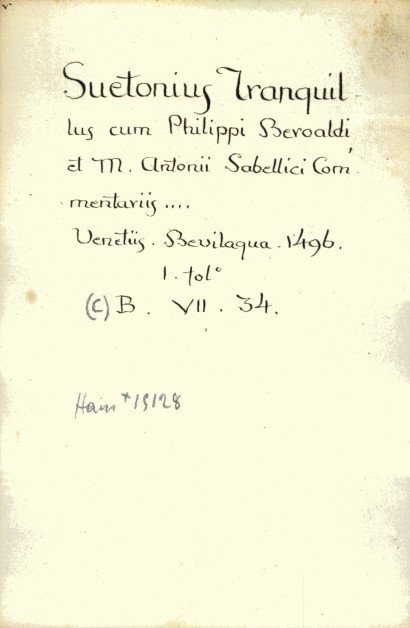 Suetonius Tranquil-
lus cum Philippi Beroaldi
et M. Antonii Sabellici Com-
mentariis ....
Venetiis. Bevilaqua. 1496.
1. fol°
(C) B. VII. 34.
Hain *15128